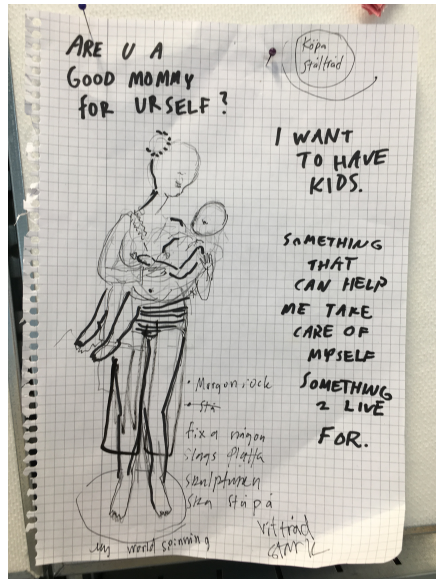 ARE U A
GOOD MOMMY
FOR URSELF?
Köpa
ståltråd
I WANT
TO HAVE
KIDS.
SOMETHING
THAT
CAN HELP
ME TAKE
CARE OF
MYSELF
SOMETHING
2 LIVE
FOR.
• Morgonrock
fixa någon
slags platta
skulpturen
ska stå på
Vit tråd
my world spinning